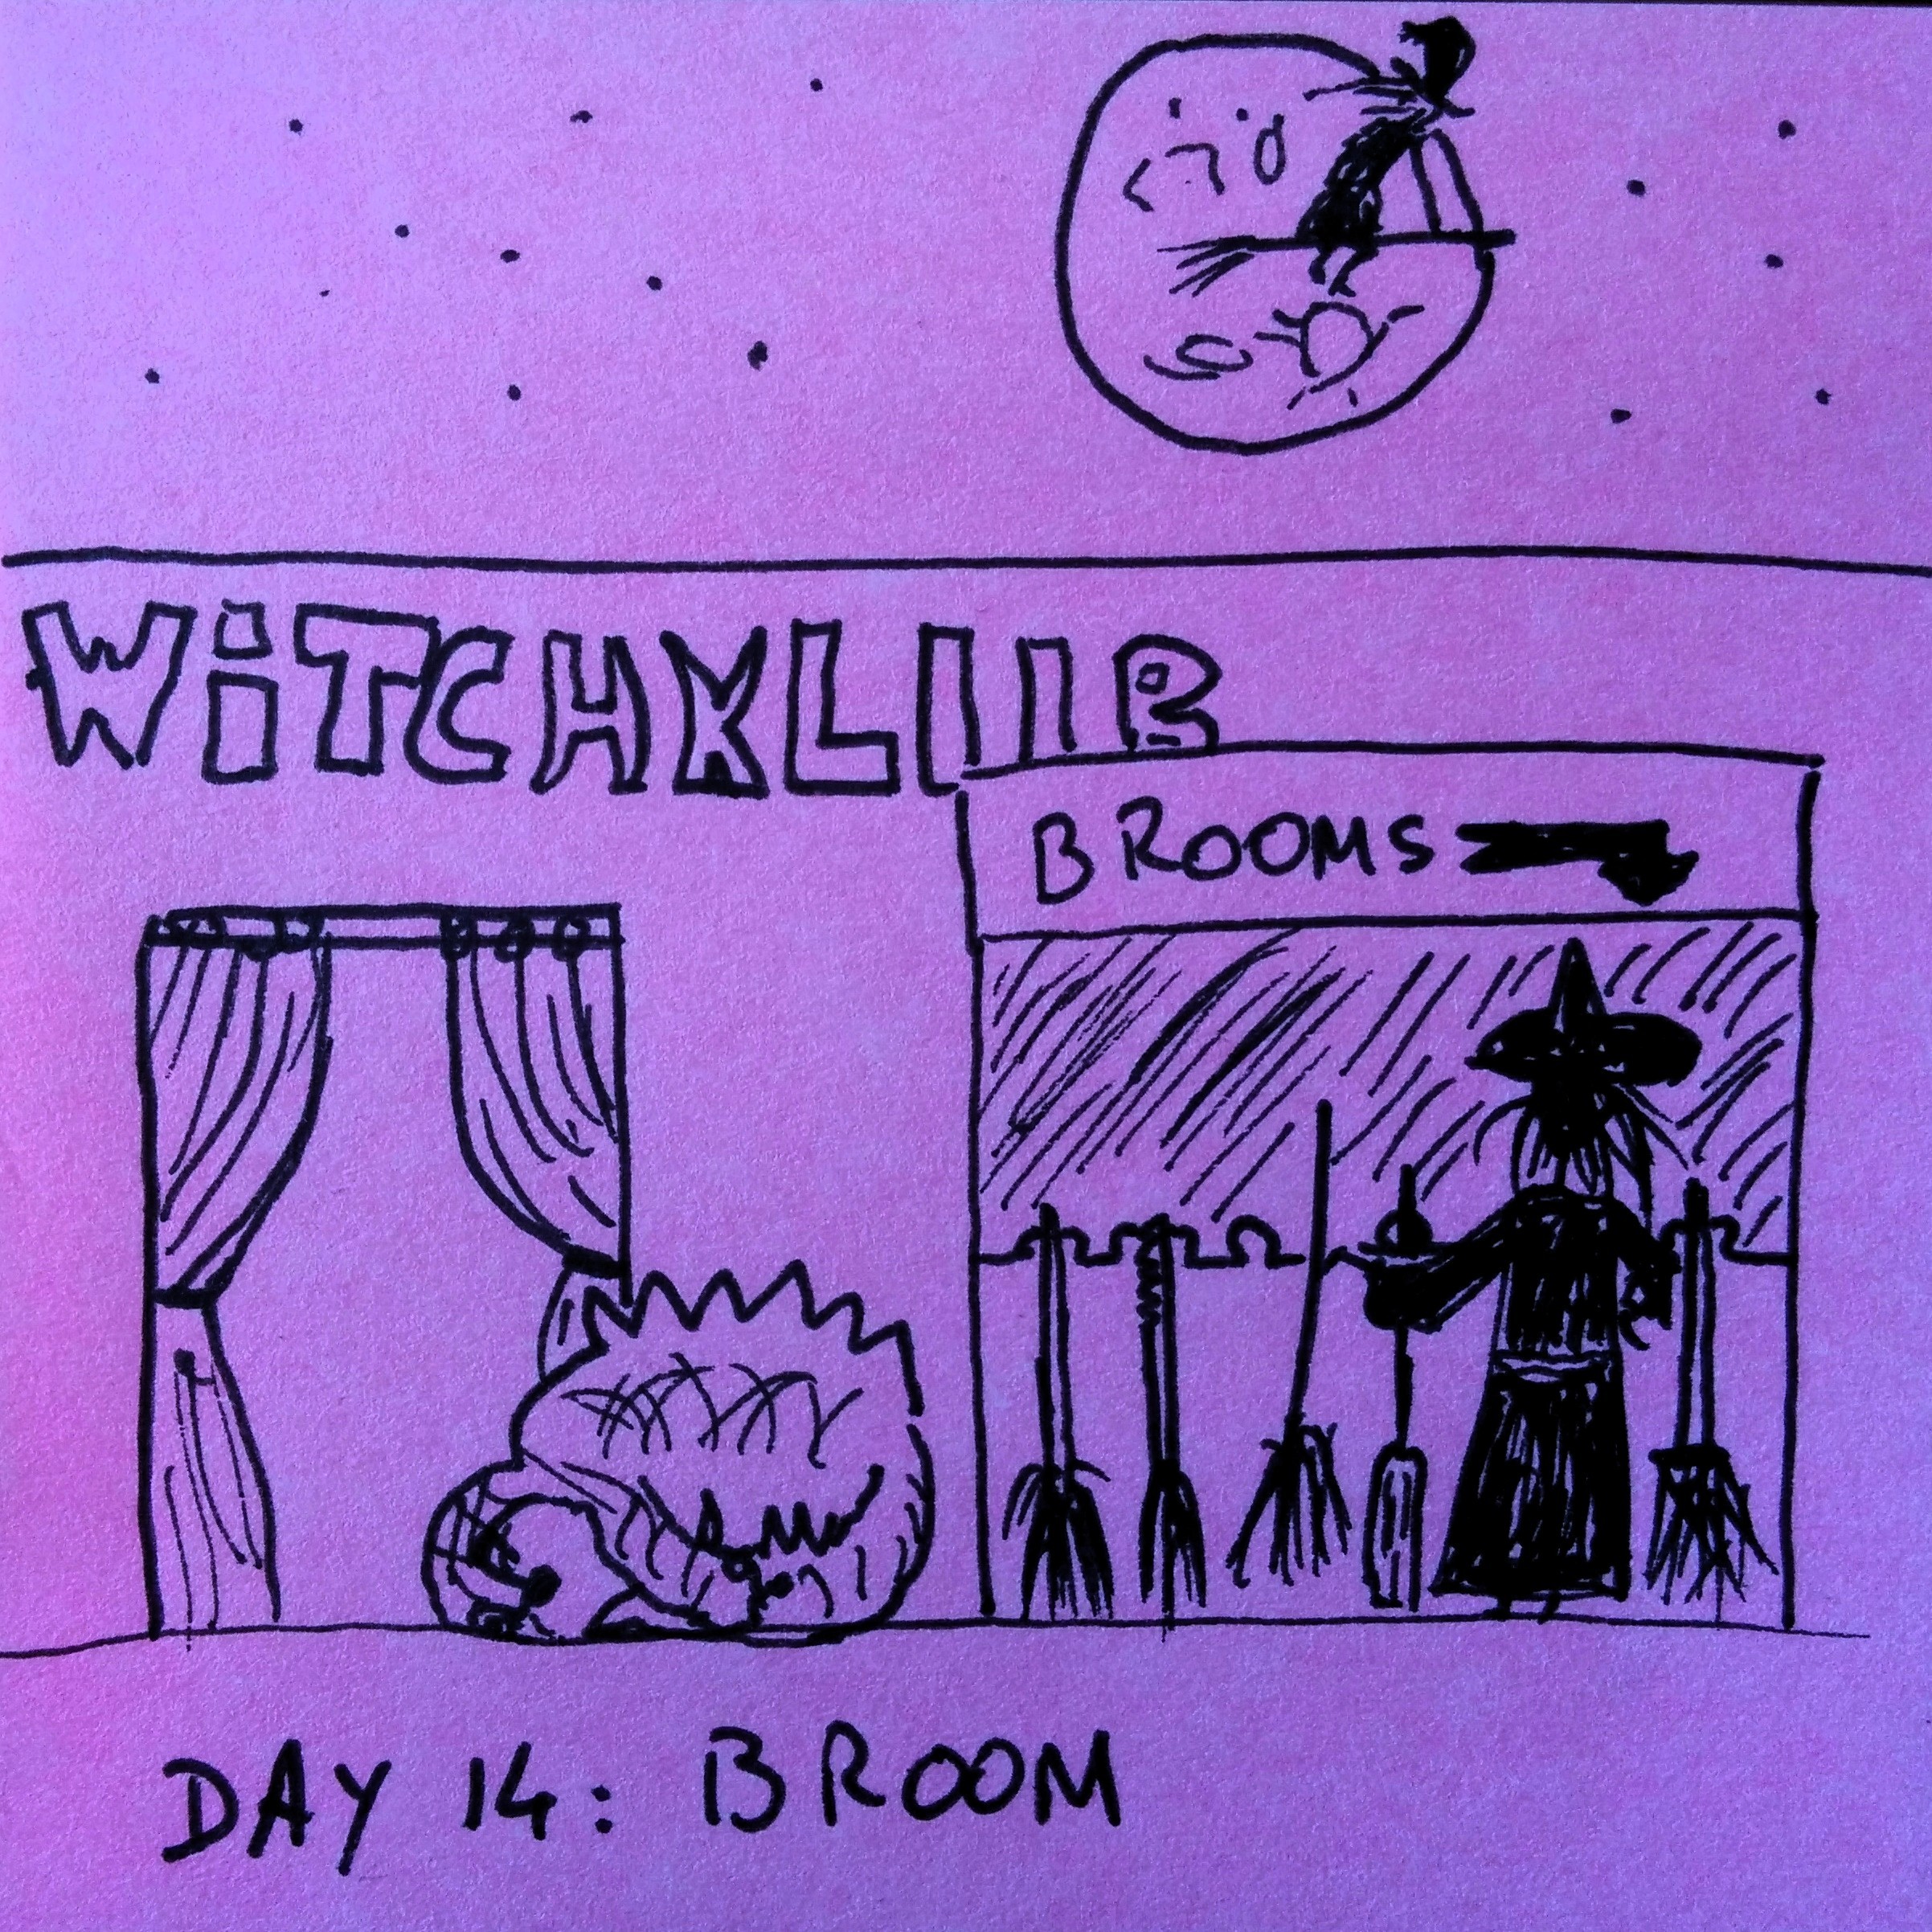 WiTCHKLUB
BROOMS
DAY 14: BROOM